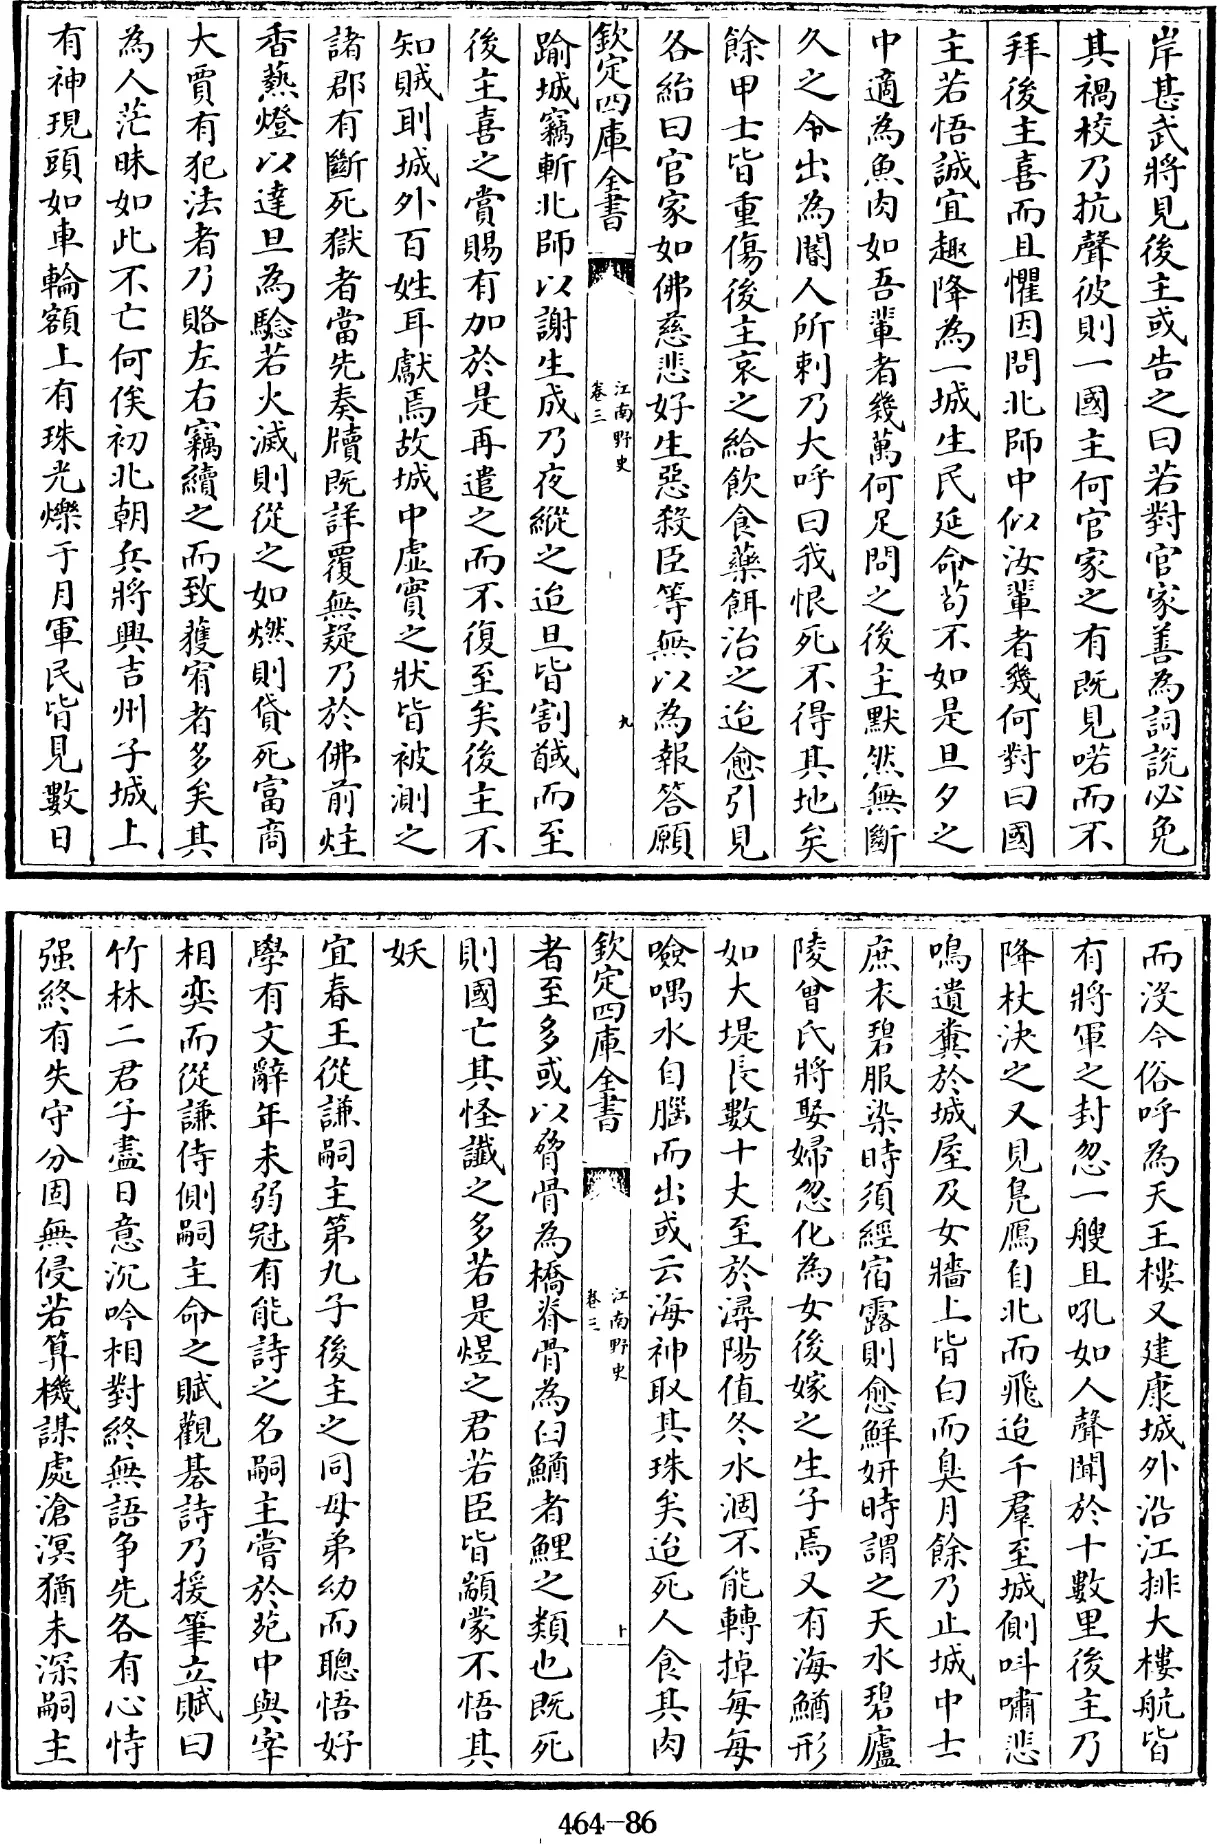 岸甚武將見後主或告之曰若對官家善為詞說必免
其禍校乃抗聲彼則一國主何官家之有既見喏而不
拜後主喜而且懼因問北師中似汝輩者幾何對曰國
主若悟誠宜趣降為一城生民延命茍不如是旦夕之
中適為魚肉如吾輩者幾萬何足問之後主默然無斷
久之令出為闇人所刺乃大呼曰我恨死不得其地矣
餘甲士皆重傷後主哀之給飲食藥餌治之迨愈引見
各紿曰官家如佛慈悲好生惡殺臣等無以為報答願
欽定四庫全書
江南野史
卷三
九
踰城竊斬北師以謝生成乃夜縱之迨旦皆割馘而至
後主喜之賞賜有加於是再遣之而不復至矣後主不
知賊則城外百姓耳獻焉故城中虛實之狀皆被測之
諸郡有斷死獄者當先奏牘既詳覆無疑乃於佛前炷
香爇燈以達旦為驗若火滅則從之如燃則貸死富商
大賈有犯法者乃賂左右竊續之而致獲宥者多矣其
為人茫昧如此不亡何俟初北朝兵將興吉州子城上
有神現頭如車輪額上有珠光爍于月軍民皆見數日
而沒今俗呼為天王樓又建康城外沿江排大樓航皆
有將軍之封忽一艘且吼如人聲聞於十數里後主乃
降杖決之又見鳧鴈自北而飛迨千羣至城側呌嘯悲
鳴遺糞於城屋及女牆上皆白而臭月餘乃止城中士
庶衣碧服染時須經宿露則愈鮮妍時謂之天水碧廬
陵曾氏將娶婦忽化為女後嫁之生子焉又有海鰌形
如大堤長數十丈至於潯陽值冬水涸不能轉掉每每
噞喁水自腦而出或云海神取其珠矣迨死人食其肉
欽定四庫全書
江南野史
卷三
十
者至多或以脅骨為橋脊骨為臼鰌者鯉之類也既死
則國亡其怪讖之多若是煜之君若臣皆顓蒙不悟其
妖
宜春王從謙嗣主第九子後主之同母弟幼而聰悟好
學有文辭年未弱冠有能詩之名嗣主嘗於苑中與宰
相奕而從謙侍側嗣主命之賦觀碁詩乃援筆立賦曰
竹林二君子盡日意沉吟相對終無語爭先各有心恃
强終有失守分固無侵若算機謀處滄溟猶未深嗣主
464-86